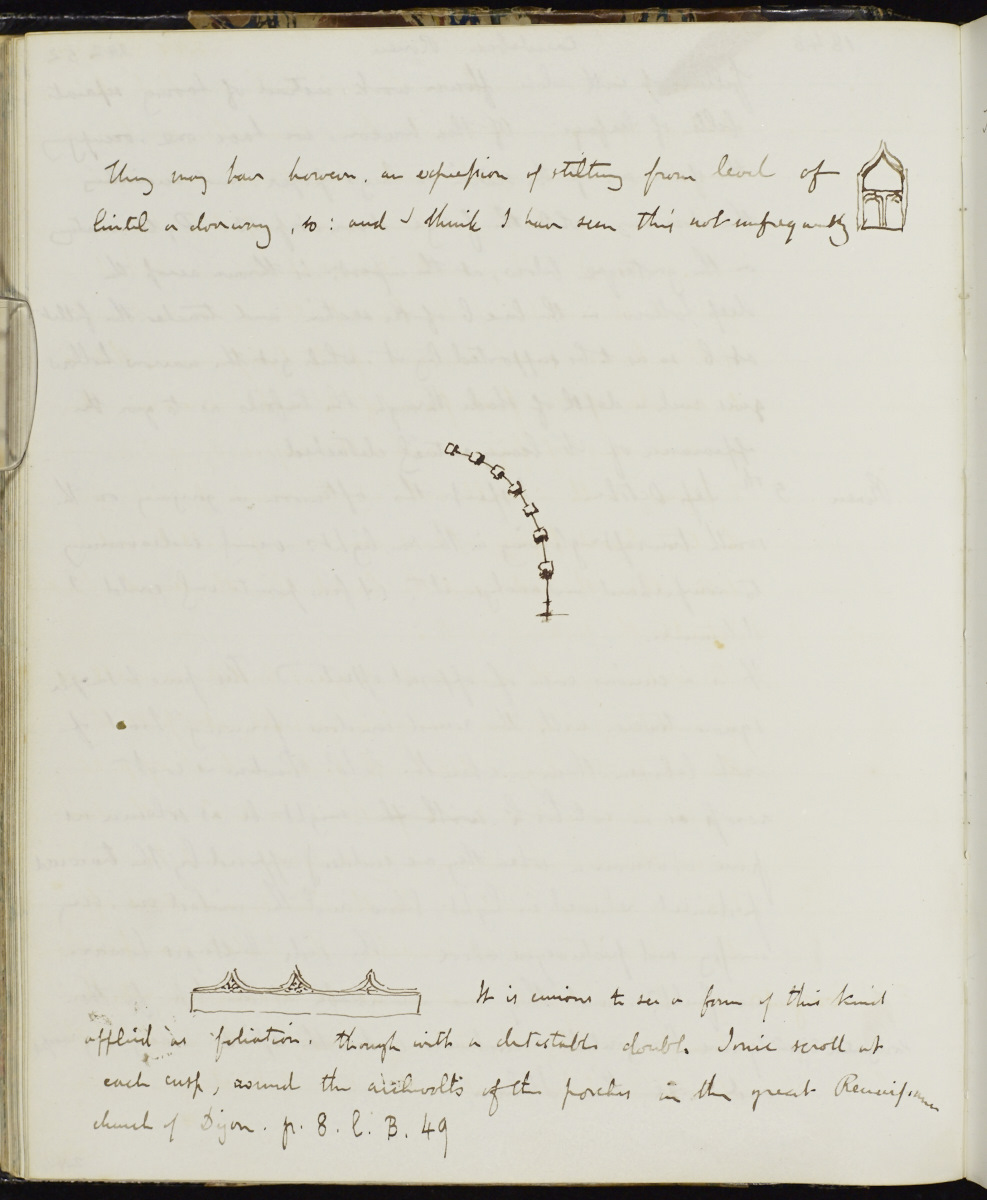 They may have however, an expression of stilting from level of
lintel or doorway, so: and I think I have seen this not unfrequently
It is curious to see a form of this kind
applied as foliation. though with a detestable double Ionic scroll at
each cusp, around the archivolts of the porches in the great Renaissance
church of Dijon. p. 8. l. B. 49